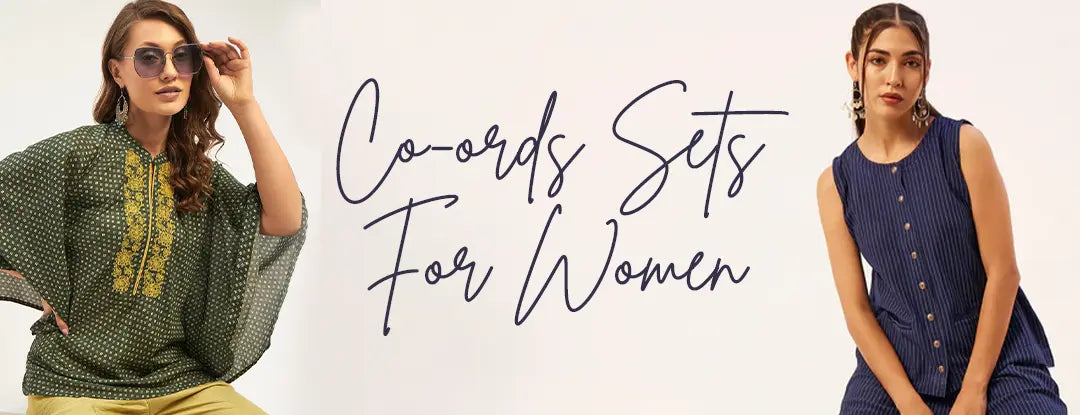 Co-ords Sets
For Women